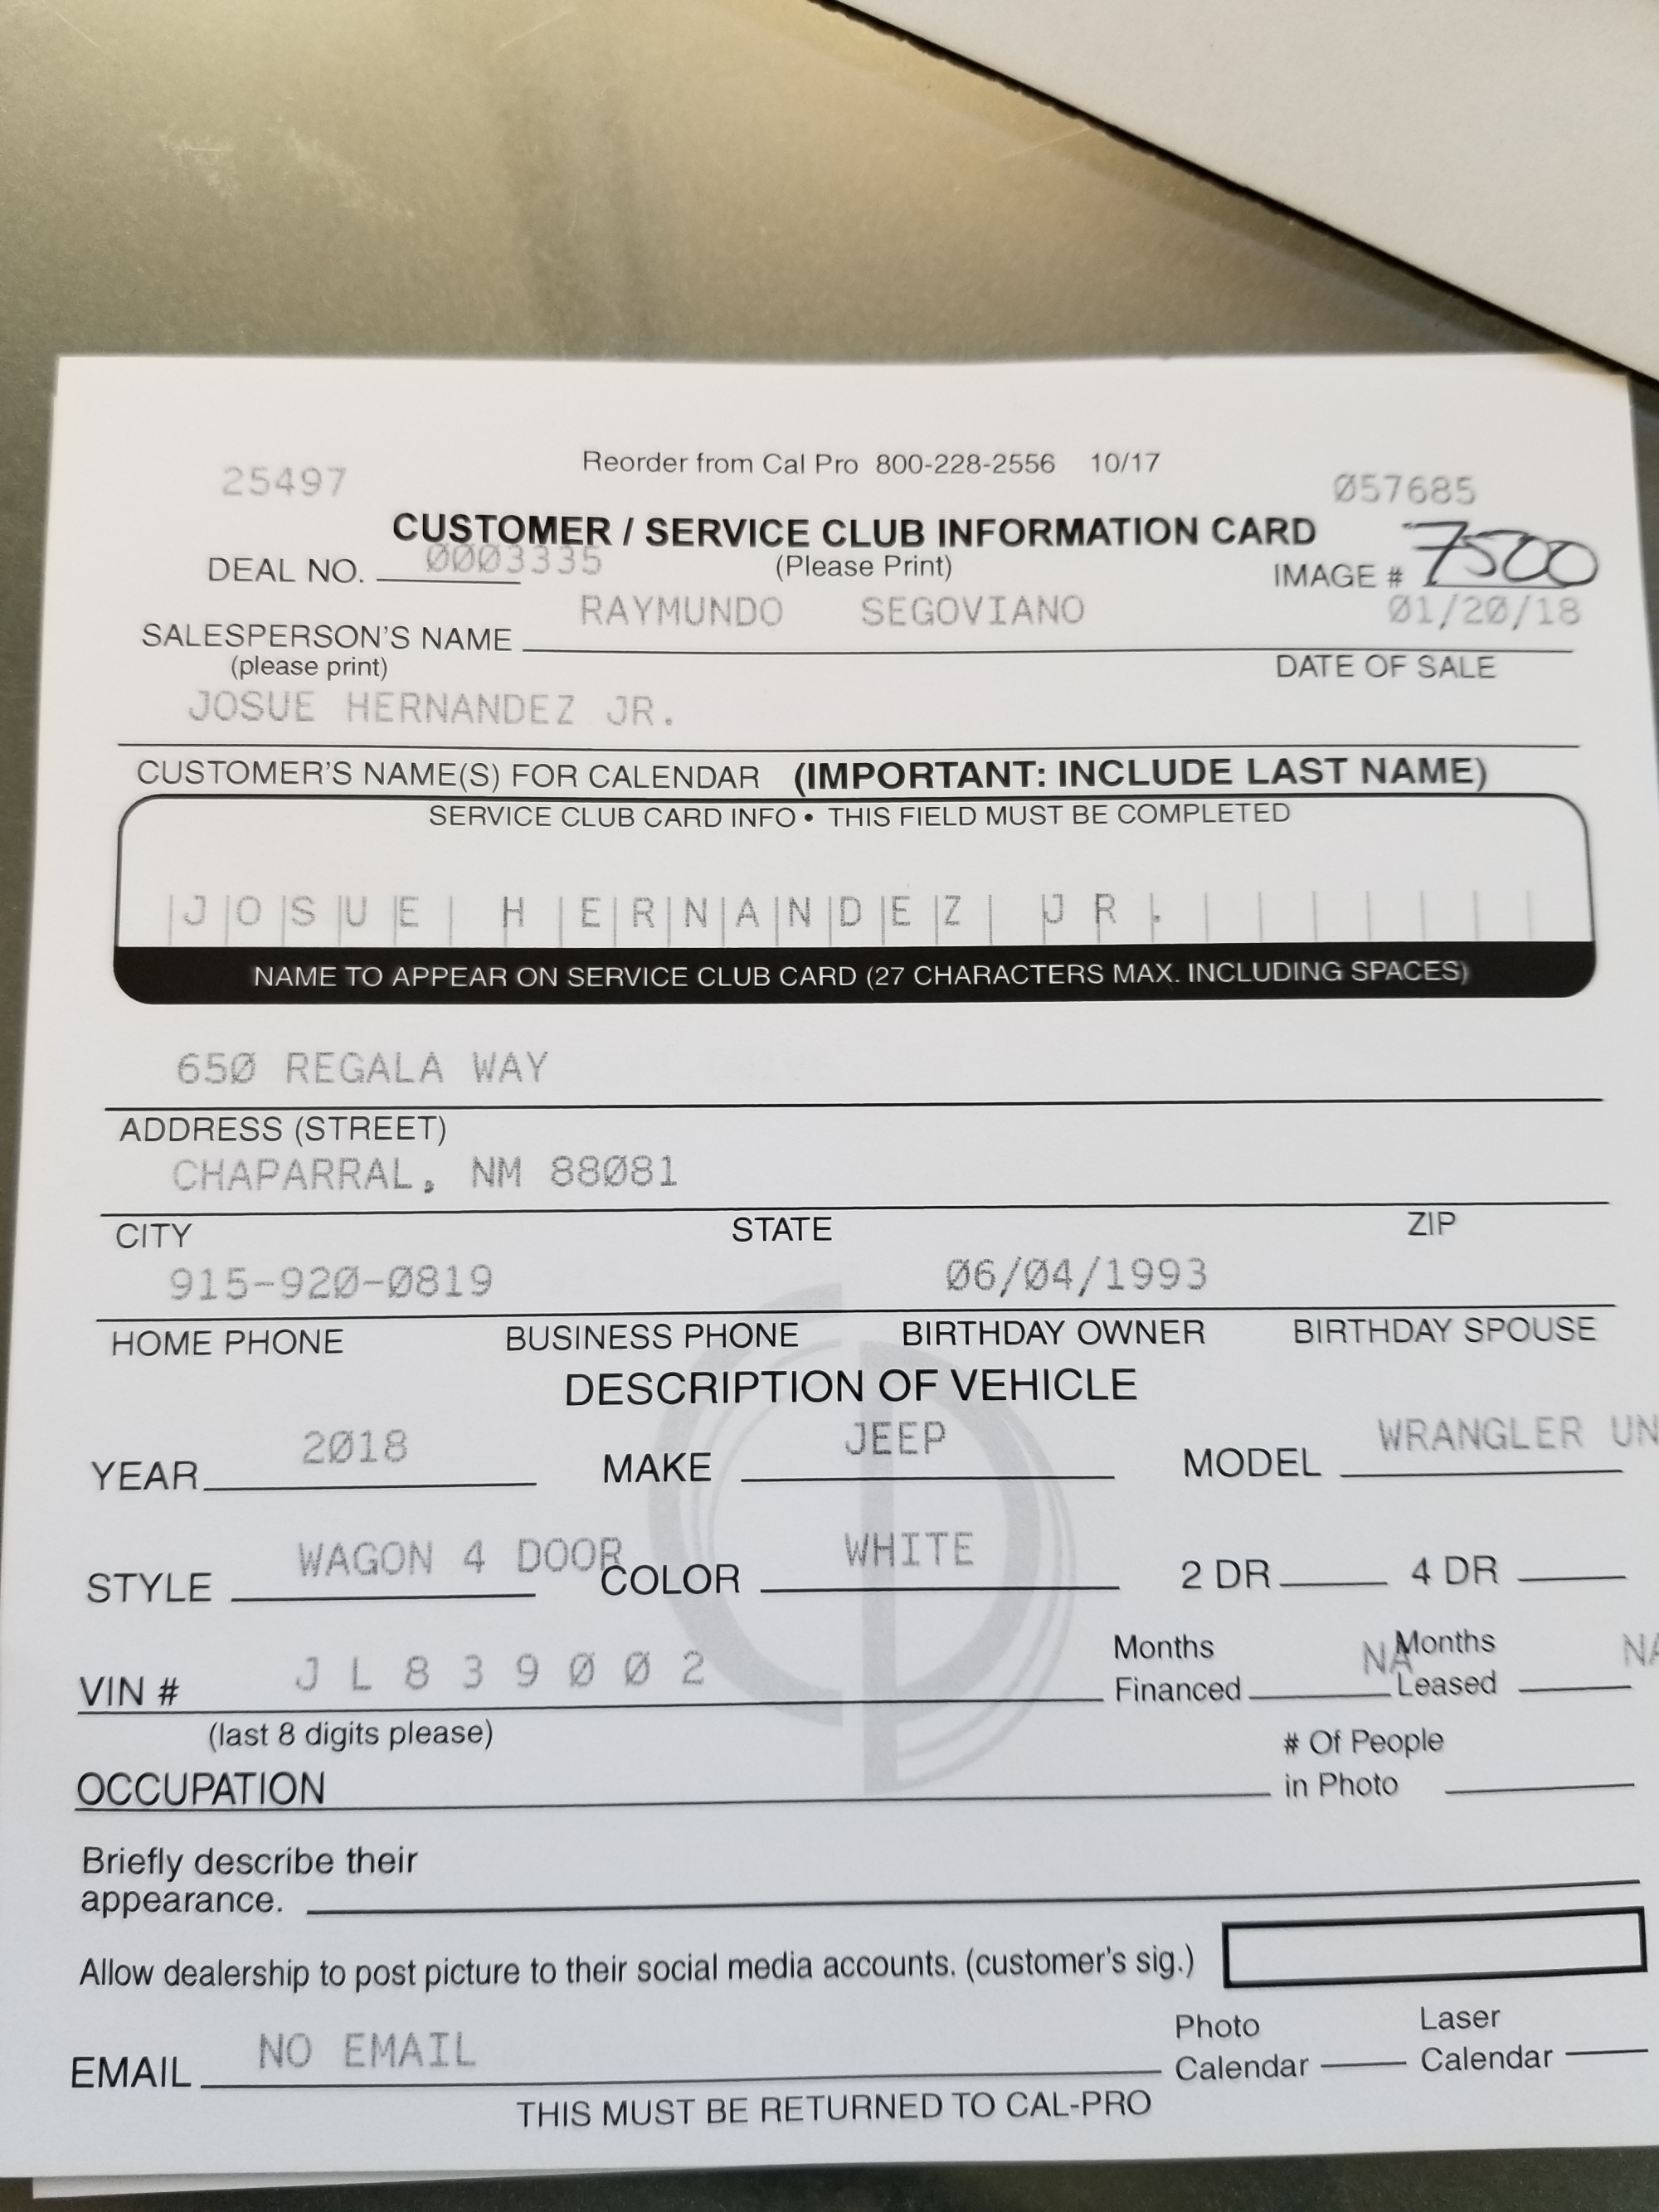 Reorder from Cal Pro 800-228-2556 10/17
25497 057685
CUSTOMER / SERVICE CLUB INFORMATION CARD
DEAL NO. 0003335 (Please Print) IMAGE # 7500
SALESPERSON'S NAME RAYMUNDO SEGOVIANO 01/20/18
(please print) DATE OF SALE
JOSUE HERNANDEZ JR.
CUSTOMER'S NAME(S) FOR CALENDAR (IMPORTANT: INCLUDE LAST NAME)
SERVICE CLUB CARD INFO • THIS FIELD MUST BE COMPLETED
JOSUE HERNANDEZ JR.
NAME TO APPEAR ON SERVICE CLUB CARD (27 CHARACTERS MAX. INCLUDING SPACES)
650 REGALA WAY
ADDRESS (STREET)
CHAPARRAL, NM 88081
CITY STATE ZIP
915-920-0819 06/04/1993
HOME PHONE BUSINESS PHONE BIRTHDAY OWNER BIRTHDAY SPOUSE
DESCRIPTION OF VEHICLE
YEAR 2018 MAKE JEEP MODEL WRANGLER UN
STYLE WAGON 4 DOOR COLOR WHITE 2 DR 4 DR
VIN # JL839002 Months Financed NA Months Leased NA
(last 8 digits please)
OCCUPATION # Of People in Photo
Briefly describe their
appearance.
Allow dealership to post picture to their social media accounts. (customer's sig.)
EMAIL NO EMAIL Photo Calendar Laser Calendar
THIS MUST BE RETURNED TO CAL-PRO